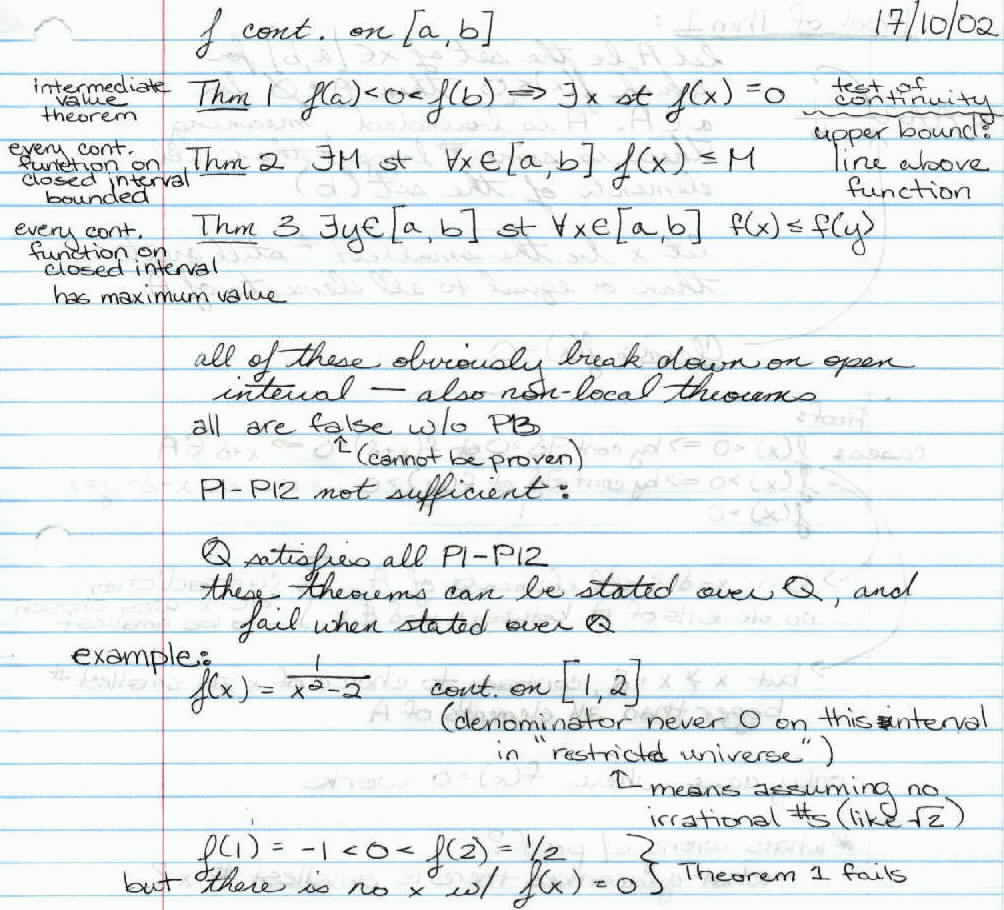 f cont. on [a, b]
17/10/02
intermediate
value
theorem
Thm 1 f(a)<0<f(b) ⇒ ∃x st f(x) = 0
test of
continuity
every cont.
function on
closed interval
bounded
Thm 2 ∃M st ∀x∈[a, b] f(x) ≤ M
upper bound:
line above
function
every cont.
function on
closed interval
has maximum value
Thm 3 ∃y∈[a, b] st ∀x∈[a, b] f(x) ≤ f(y)
all of these obviously break down on open
interval — also non-local theorems
all are false w/o P13
↑(cannot be proven)
P1-P12 not sufficient:
Q satisfies all P1-P12
these theorems can be stated over Q, and
fail when stated over Q
example:
f(x) = 1/(x²-2) cont. on [1, 2]
(denominator never 0 on this interval
in "restricted universe")
↑ means assuming no
irrational #s (like √2)
f(1) = -1 < 0 < f(2) = 1/2
but there is no x w/ f(x) = 0} Theorem 1 fails